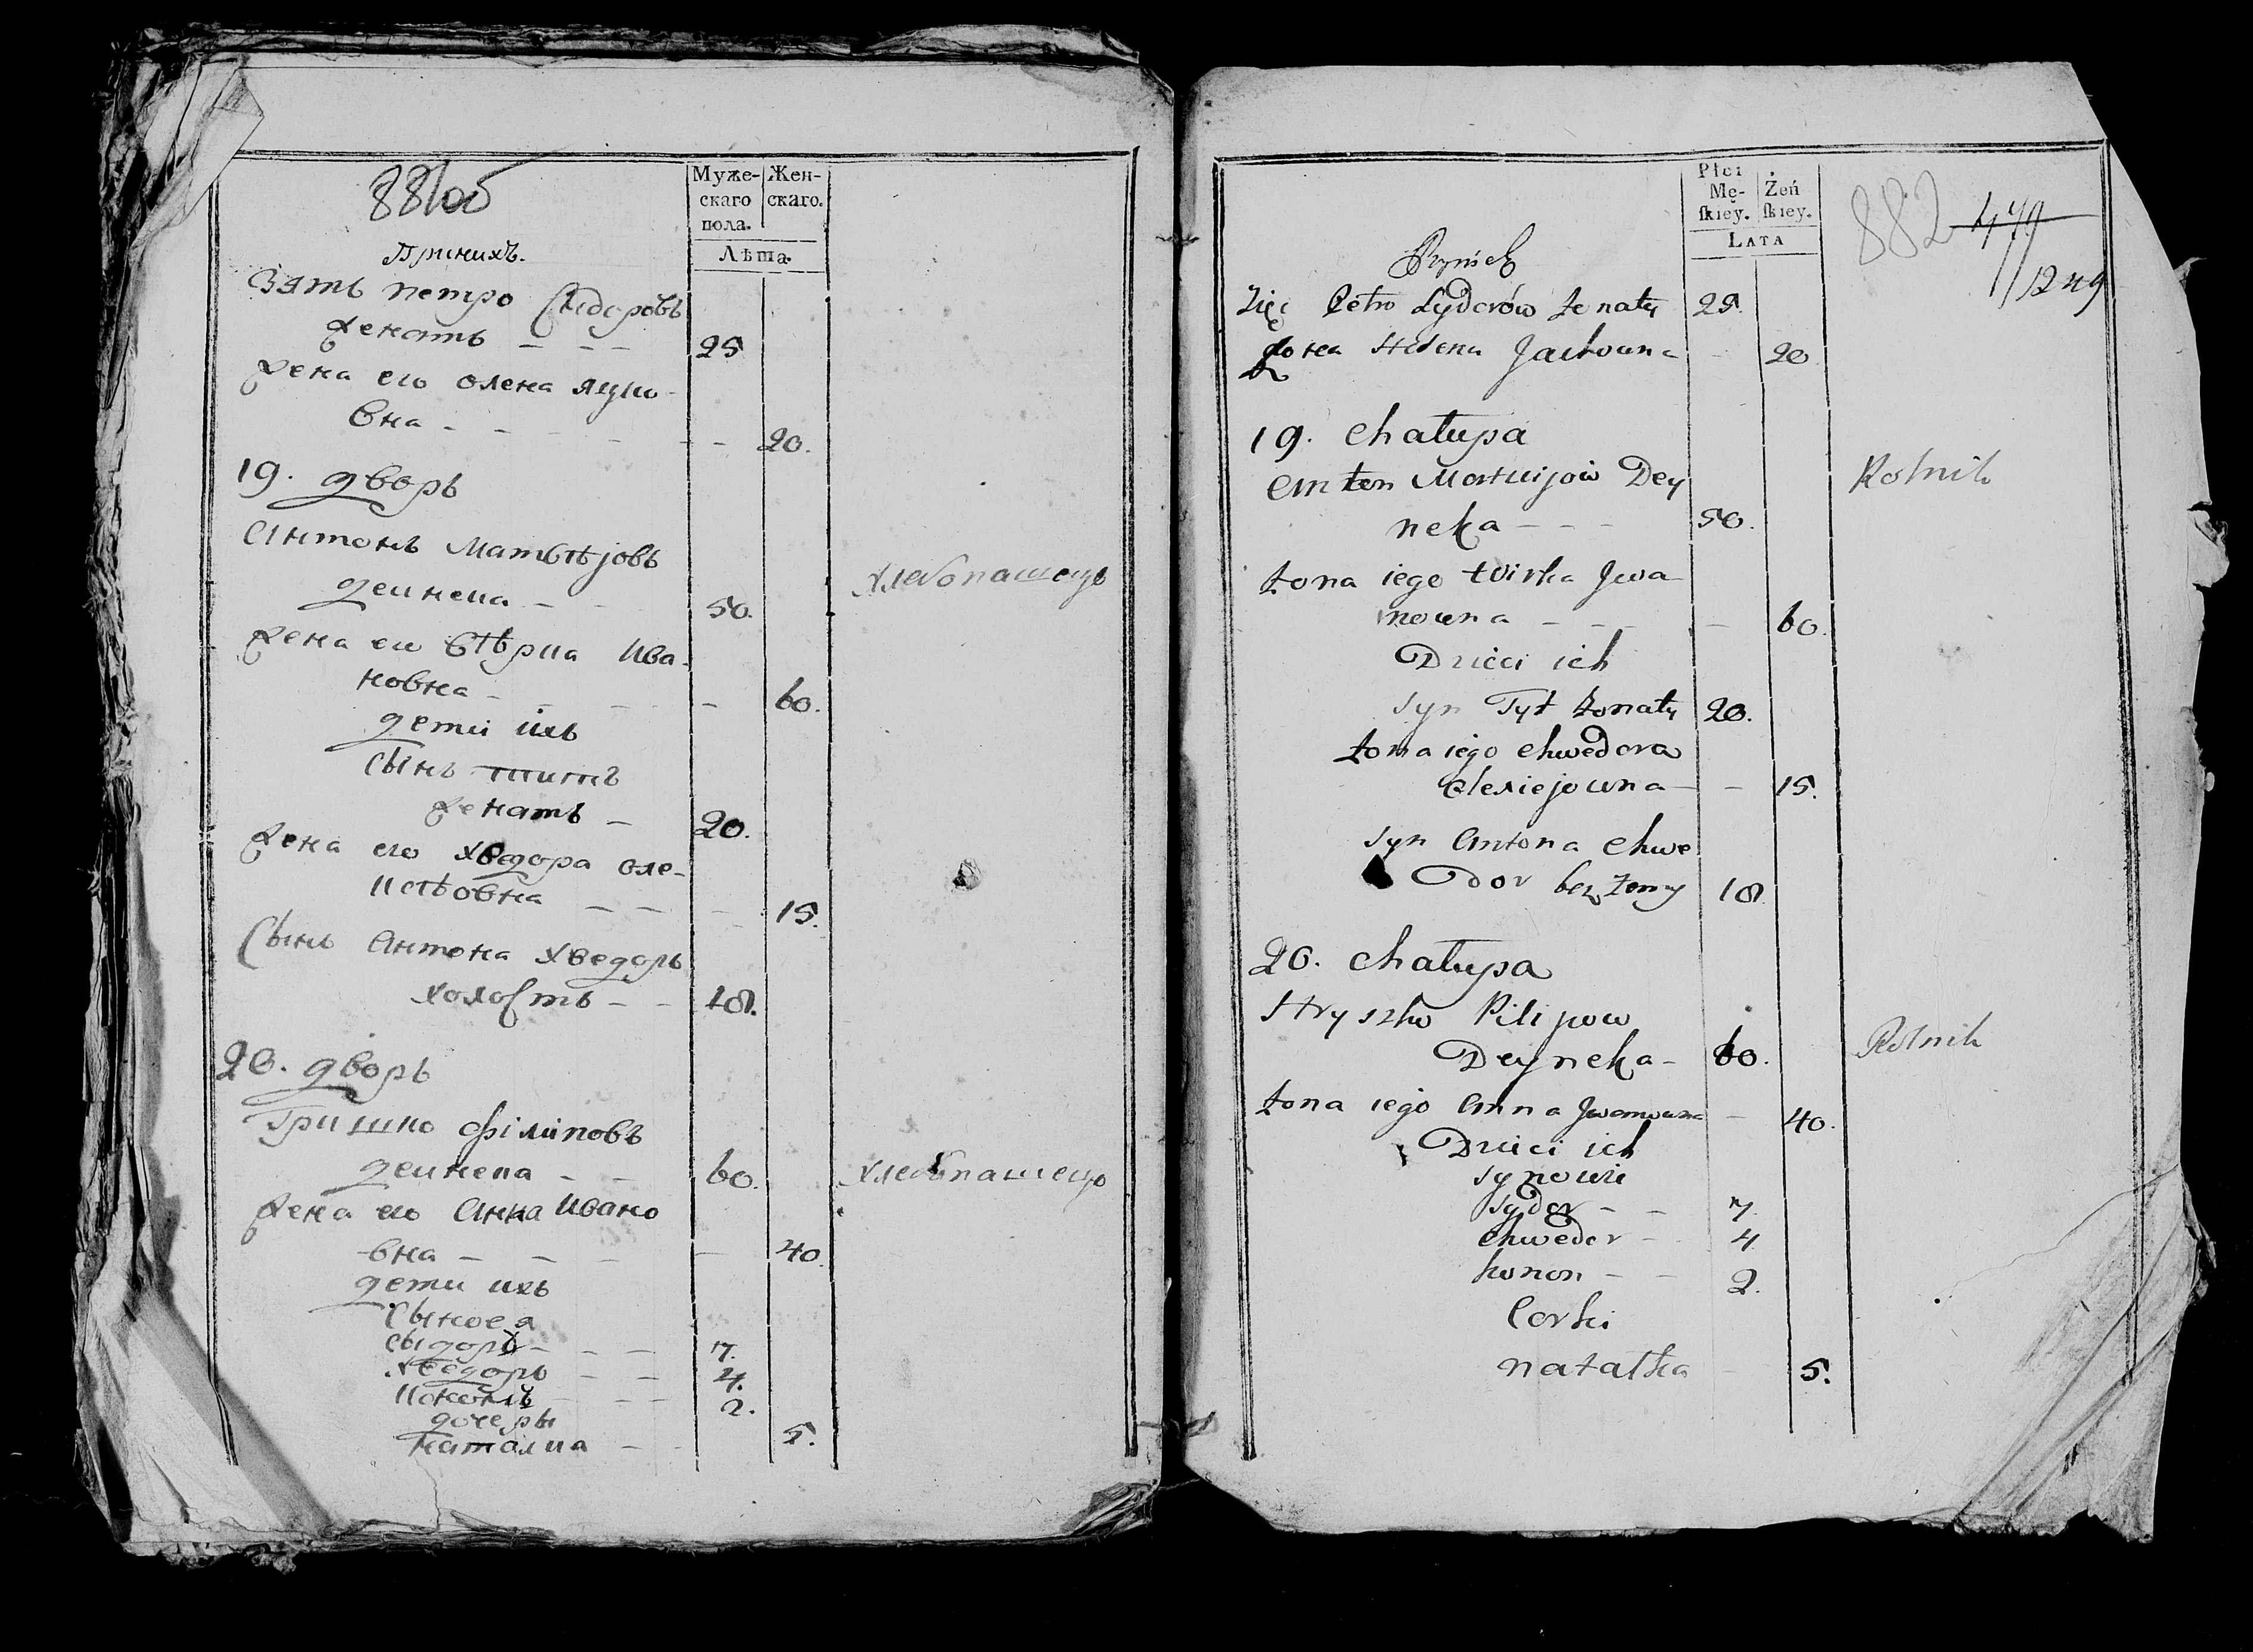 881об
Муже-
скаго
пола.
Жен-
скаго.
Лѣта.
При нихъ.
Зять петро Сидоровъ
женатъ - - - 25
жена его олена яцко-
вна - - - - - - 20.
19. дворъ
Антонъ Матвѣјовъ
дейнека - - 50. хлебопашецъ
жена его вѣрка Ива-
новна - - - - 60.
дети ихъ
Сынъ титъ
женатъ - 20.
жена его хведора оле-
ксѣовна - - - 15.
Сынъ Антона хведоръ
холостъ - - 18.
20. дворъ
Гришко филиповъ
дейнека - - 60. хлебопашецъ
жена его Анна Ивано
вна - - - - 40.
дети ихъ
Сыновя
сыдоръ - - - 7.
хведоръ - - 4.
кононъ - - 2.
дочеры
наталка - - 5.
Płci
Mę-
ſkiey.
Żeń
ſkiey.
LATA
882 479
1249
Przynich
Zięć Petro Sydorów żonaty 25.
żona Helena Jackowna - 20
19. Chałupa
Anton Matwijów Dey Rolnik
neka - - - 50.
żona iego Wirka Iwa
nowna - - - - 60.
Dzieci ich
syn Tyt żonaty 20.
żona iego Chwedora
Olexiejowna - - 15.
syn Antona Chwe
dor bez żony 18.
20. Chałupa
Hryszko Pilipow
Deyneka - 60. Rolnik
żona iego Anna Iwanowna - 40.
Dzieci ich
synowie
Sydor - - 7.
Chwedor - 4.
konon - - 2.
Corki
natalka - 5.